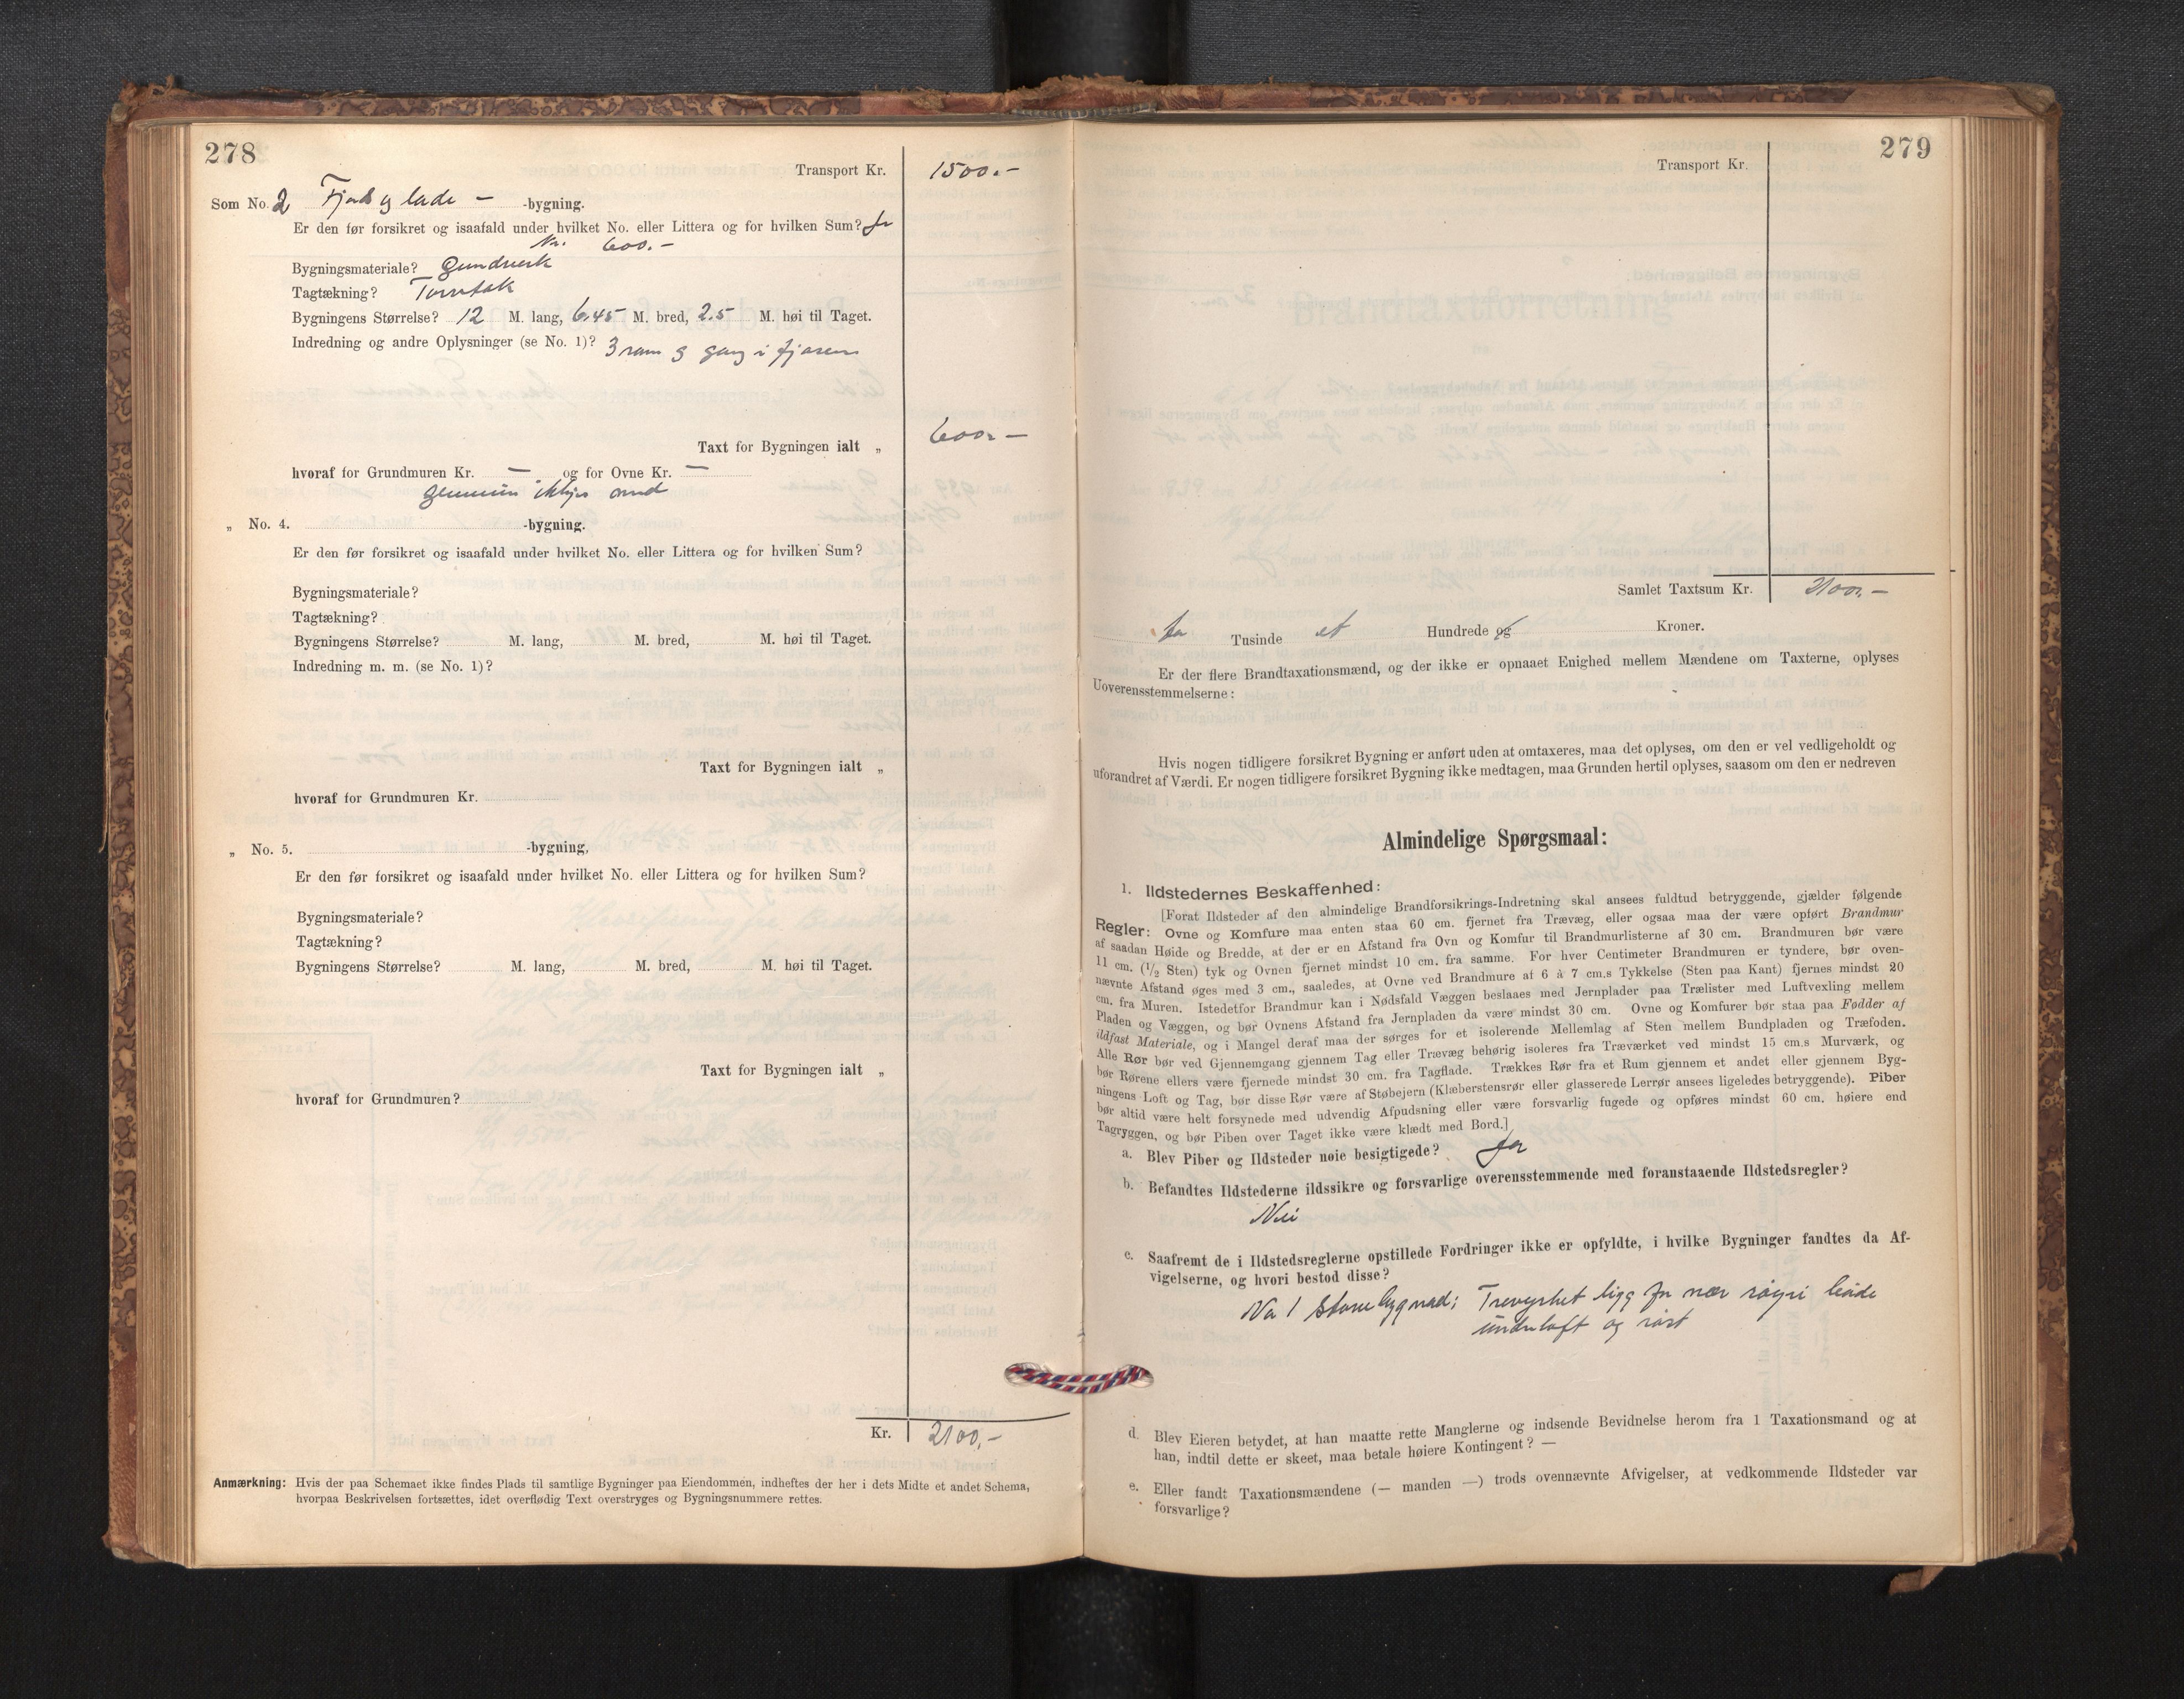 278
Transport Kr. 1500.-
Som No. 2 Fjøs og løde - -bygning.
Er den før forsikret og isaafald under hvilket No. eller Littera og for hvilken Sum? Ja
Kr. 600.-
Bygningsmateriale? Grindverk
Tagtækning? Torvtak
Bygningens Størrelse? 12 M. lang, 6.45 M. bred, 2.5 M. høi til Taget.
Indredning og andre Oplysninger (se No. 1)? 3 rom og gang i fjøsen
Taxt for Bygningen ialt „ 600.-
hvoraf for Grundmuren Kr. — og for Ovne Kr. —
Grunnmur ikkje
„ No. 4. -bygning.
Er den før forsikret og isaafald under hvilket No. eller Littera og for hvilken Sum?
Bygningsmateriale?
Tagtækning?
Bygningens Størrelse? M. lang, M. bred, M. høi til Taget.
Indredning m. m. (se No. 1)?
Taxt for Bygningen ialt „
hvoraf for Grundmuren Kr.
„ No. 5. -bygning,
Er den før forsikret og isaafald under hvilket No. eller Littera og for hvilken Sum?
Bygningsmateriale?
Tagtækning?
Bygningens Størrelse? M. lang, M. bred, M. høi til Taget.
Taxt for Bygningen ialt „
hvoraf for Grundmuren?
Kr. 2100,-
Anmærkning: Hvis der paa Schemaet ikke findes Plads til samtlige Bygninger paa Eiendommen, indheftes der her i dets Midte et andet Schema,
hvorpaa Beskrivelsen fortsættes, idet overflødig Text overstryges og Bygningsnummere rettes.
279
Transport Kr.
Samlet Taxtsum Kr. 2100.-
to Tusinde et Hundrede og Kroner.
Er der flere Brandtaxationsmænd, og der ikke er opnaaet Enighed mellem Mændene om Taxterne, oplyses
Uoverensstemmelserne:
Hvis nogen tidligere forsikret Bygning er anført uden at omtaxeres, maa det oplyses, om den er vel vedligeholdt og
uforandret af Værdi. Er nogen tidligere forsikret Bygning ikke medtagen, maa Grunden hertil oplyses, saasom om den er nedreven
Almindelige Spørgsmaal:
1. Ildstedernes Beskaffenhed:
[Forat Ildsteder af den almindelige Brandforsikrings-Indretning skal ansees fuldtud betryggende, gjælder følgende
Regler: Ovne og Komfure maa enten staa 60 cm. fjernet fra Trævæg, eller ogsaa maa der være opført Brandmur
af saadan Høide og Bredde, at der er en Afstand fra Ovn og Komfur til Brandmurlisterne af 30 cm. Brandmuren bør være
11 cm. (1/2 Sten) tyk og Ovnen fjernet mindst 10 cm. fra samme. For hver Centimeter Brandmuren er tyndere, bør oven-
nævnte Afstand øges med 3 cm., saaledes, at Ovne ved Brandmure af 6 à 7 cm.s Tykkelse (Sten paa Kant) fjernes mindst 20
cm. fra Muren. Istedetfor Brandmur kan i Nødsfald Væggen beslaaes med Jernplader paa Trælister med Luftvexling mellem
Pladen og Væggen, og bør Ovnens Afstand fra Jernpladen da være mindst 30 cm. Ovne og Komfurer bør staa paa Fødder af
ildfast Materiale, og i Mangel deraf maa der sørges for et isolerende Mellemlag af Sten mellem Bundpladen og Træfoden.
Alle Rør bør ved Gjennemgang gjennem Tag eller Trævæg behørig isoleres fra Træværket ved mindst 15 cm.s Murværk, og
bør Rørene ellers være fjernede mindst 30 cm. fra Tagflade. Trækkes Rør fra et Rum gjennem et andet eller gjennem Byg-
ningens Loft og Tag, bør disse Rør være af Støbejern (Klæberstensrør eller glasserede Lerrør ansees ligeledes betryggende). Piber
bør altid være helt forsynede med udvendig Afpudsning eller være forsvarlig fugede og opføres mindst 60 cm. høiere end
Tagryggen, og bør Piben over Taget ikke være klædt med Bord.]
a. Blev Piber og Ildsteder nøie besigtigede? Ja
b. Befandtes Ildstederne ildssikre og forsvarlige overensstemmende med foranstaaende Ildstedsregler?
Nei
c. Saafremt de i Ildstedsreglerne opstillede Fordringer ikke er opfyldte, i hvilke Bygninger fandtes da Af-
vigelserne, og hvori bestod disse?
No 1 Stovebygnad; Treverket ligg for nær røyri både
under loft og røst
d. Blev Eieren betydet, at han maatte rette Manglerne og indsende Bevidnelse herom fra 1 Taxationsmand og at
han, indtil dette er skeet, maa betale høiere Kontingent? —
e. Eller fandt Taxationsmændene (— manden —) trods ovennævnte Afvigelser, at vedkommende Ildsteder var
forsvarlige?